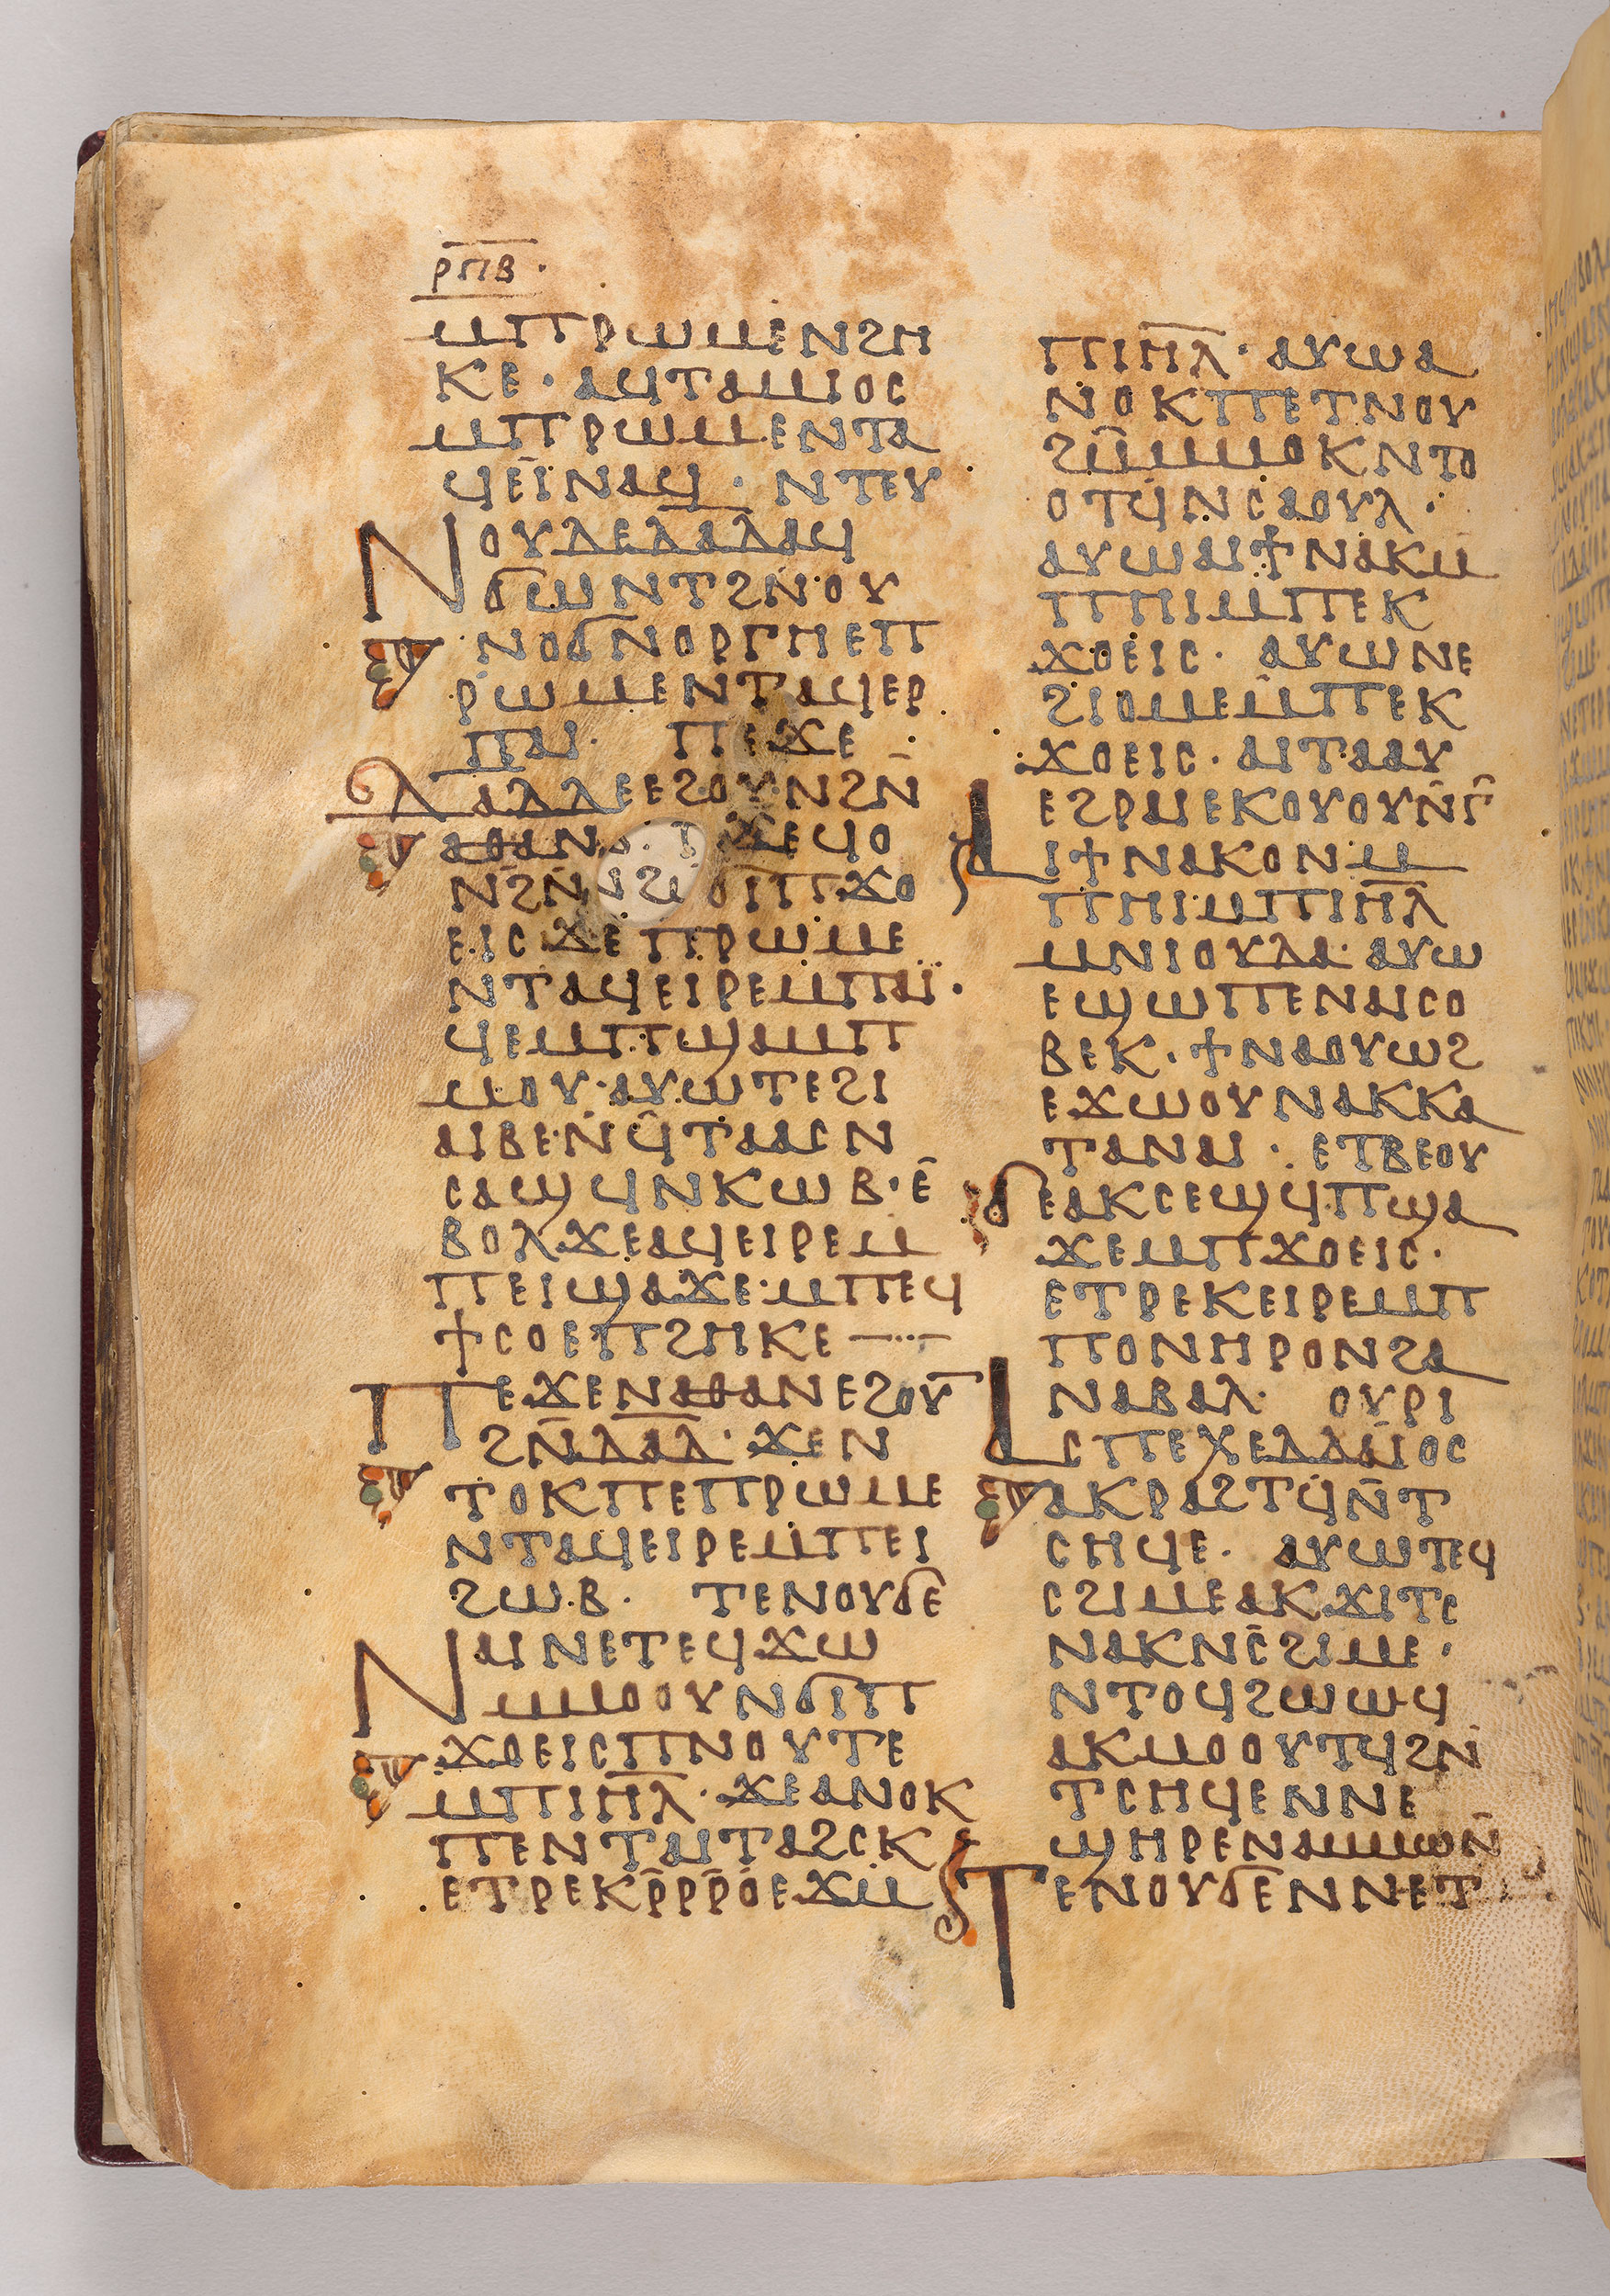 ⲣⲡⲃ·
ⲙⲡⲣⲱⲙⲉⲛϩⲏ
ⲕⲉ· ⲁϥⲧⲁⲙⲓⲟⲥ
ⲙⲡⲣⲱⲙⲉⲛⲧⲁ
ϥⲉⲓⲛⲁϥ· ⲛⲧⲉⲩ
ⲛⲟⲩⲇⲉⲇⲁⲇⲁϥ
ϭⲱⲛⲧϩⲛⲟⲩ
ⲛⲟϭⲛⲟⲣⲅⲏⲉⲡ
ⲣⲱⲙⲉⲛⲧⲁϥⲉⲣ
ⲡⲁⲓ· ⲡⲉϫⲉ
ⲇⲁⲇⲇⲉⲉϩⲟⲩⲛϩⲛ̄
ϫⲉϥⲟ
ⲉⲓⲥϫⲉⲡⲣⲱⲙⲉ
ⲛⲧⲁϥⲉⲓⲣⲉⲙⲡⲁⲓ̈·
ϥⲉⲙⲡϣⲁⲙⲡ
ⲙⲟⲩ·ⲁⲩⲱⲧⲉϩⲓ
ⲁⲓⲃⲉ·ⲛϥ̄ⲧⲁⲁⲥⲛ
ⲥⲁϣϥⲛⲕⲱⲃ·ⲉ̄
ⲃⲟⲗϫⲉⲁϥⲉⲓⲣⲉⲙ
ⲡⲉⲓϣⲁϫⲉ·ⲙⲡⲉϥ
ϯⲥⲟⲉⲡϩⲏⲕⲉ —··—
ⲡⲉϫⲉⲛⲁⲑⲁⲛⲉϩⲟⲩ
ϩⲛ̄ⲇⲁ̄ⲇ̄· ϫⲉⲛ
ⲧⲟⲕⲡⲉⲡⲣⲱⲙⲉ
ⲛⲧⲁϥⲉⲓⲣⲉⲙⲡⲉⲓ
ϩⲱⲃ· ⲧⲉⲛⲟⲩϭⲉ
ⲛⲁⲓⲛⲉⲧⲉϥϫⲱ
ⲙⲙⲟⲟⲩⲛϭⲓⲡ
ϫⲟⲉⲓⲥⲡⲛⲟⲩⲧⲉ
ⲙⲡⲓⲏ̄ⲗ̄· ϫⲉⲁⲛⲟⲕ
ⲡⲉⲛⲧⲁⲓⲧⲁϩⲥⲕ
ⲉⲧⲣⲉⲕⲣ̄ⲣⲣ̄ⲟⲉϫⲙ
ⲡⲓⲏ̄ⲗ̄· ⲁⲩⲱⲁ
ⲛⲟⲕⲡⲉⲧⲛⲟⲩ
ϩⲙ̄ⲙⲙⲟⲕⲛⲧⲟ
ⲟⲧϥⲛⲥⲁⲟⲩⲗ·
ⲁⲩⲱⲁⲓϯⲛⲁⲕⲙ
ⲡⲏⲓⲙⲡⲉⲕ
ϫⲟⲉⲓⲥ· ⲁⲩⲱⲛⲉ
ϩⲓⲟⲙⲉⲙ̄ⲡⲉⲕ
ϫⲟⲉⲓⲥ· ⲁⲓⲧⲁⲁⲩ
ⲉϩⲣⲁⲓⲉⲕⲟⲩⲟⲩⲛ̄ⲅ̄
ⲁⲓϯⲛⲁⲕⲟⲛⲙ
ⲡⲏⲓⲙⲡⲓⲏ̄ⲗ̄
ⲙⲛⲓⲟⲩⲇⲁ· ⲁⲩⲱ
ⲉϣⲱⲡⲉⲛⲁⲓⲥⲟ
ⲃⲉⲕ· ϯⲛⲁⲟⲩⲱϩ
ⲉϫⲱⲟⲩⲛⲁⲕⲕⲁ
ⲧⲁⲛⲁⲓ· ⲉⲧⲃⲉⲟⲩ
ϭⲉⲁⲕⲥⲉϣϥⲡϣⲁ
ϫⲉⲙⲡϫⲟⲉⲓⲥ·
ⲉⲧⲣⲉⲕⲉⲓⲣⲉⲙⲡ
ⲡⲟⲛⲏⲣⲟⲛϩⲁ
ⲛⲁⲃⲁⲗ· ⲟⲩⲣⲓ
ⲁⲥⲡⲉⲭⲉⲇⲇⲁⲓⲟⲥ
ⲁⲕⲣⲁϩⲧϥⲛ̄ⲧ
ⲥⲏϥⲉ· ⲁⲩⲱⲧⲉϥ
ⲥϩⲓⲙⲉⲁⲕϫⲓⲧⲥ
ⲛⲁⲕⲛⲥ̄ϩⲓⲙⲉ·
ⲛⲧⲟϥϩⲱⲱϥ
ⲁⲕⲙⲟⲟⲩⲧϥϩⲛ
ⲧⲥⲏϥⲉⲛⲛⲉ
ϣⲏⲣⲉⲛⲁⲙⲙⲱⲛ̄
ⲧⲉⲛⲟⲩϭⲉⲛⲛⲉⲧ